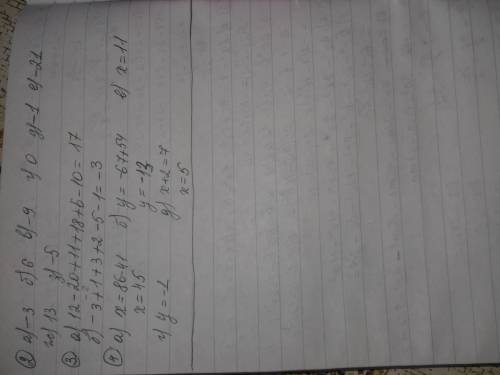 ② а) -3 б) 6 в) -9 г) 0 д) -1 е) -21
ж) 13 з) -5
③ а) 12-20+11+18+6-10=17
б) -3+1+3+2-5-1=-3
④ а) x=86-41 б) y=-67+54 в) x=11
x=45 y=-13
г) y=-1 д) x+2=7
x=5